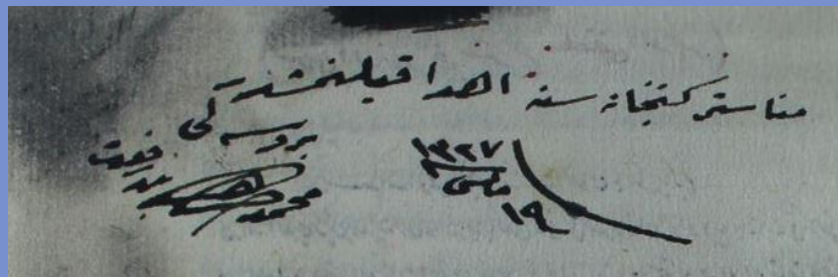 مناستر كتبخانه سنه اهدا قيلنمشدر
بروسه لى
محمد
١٩ مايس ١٣٢٧